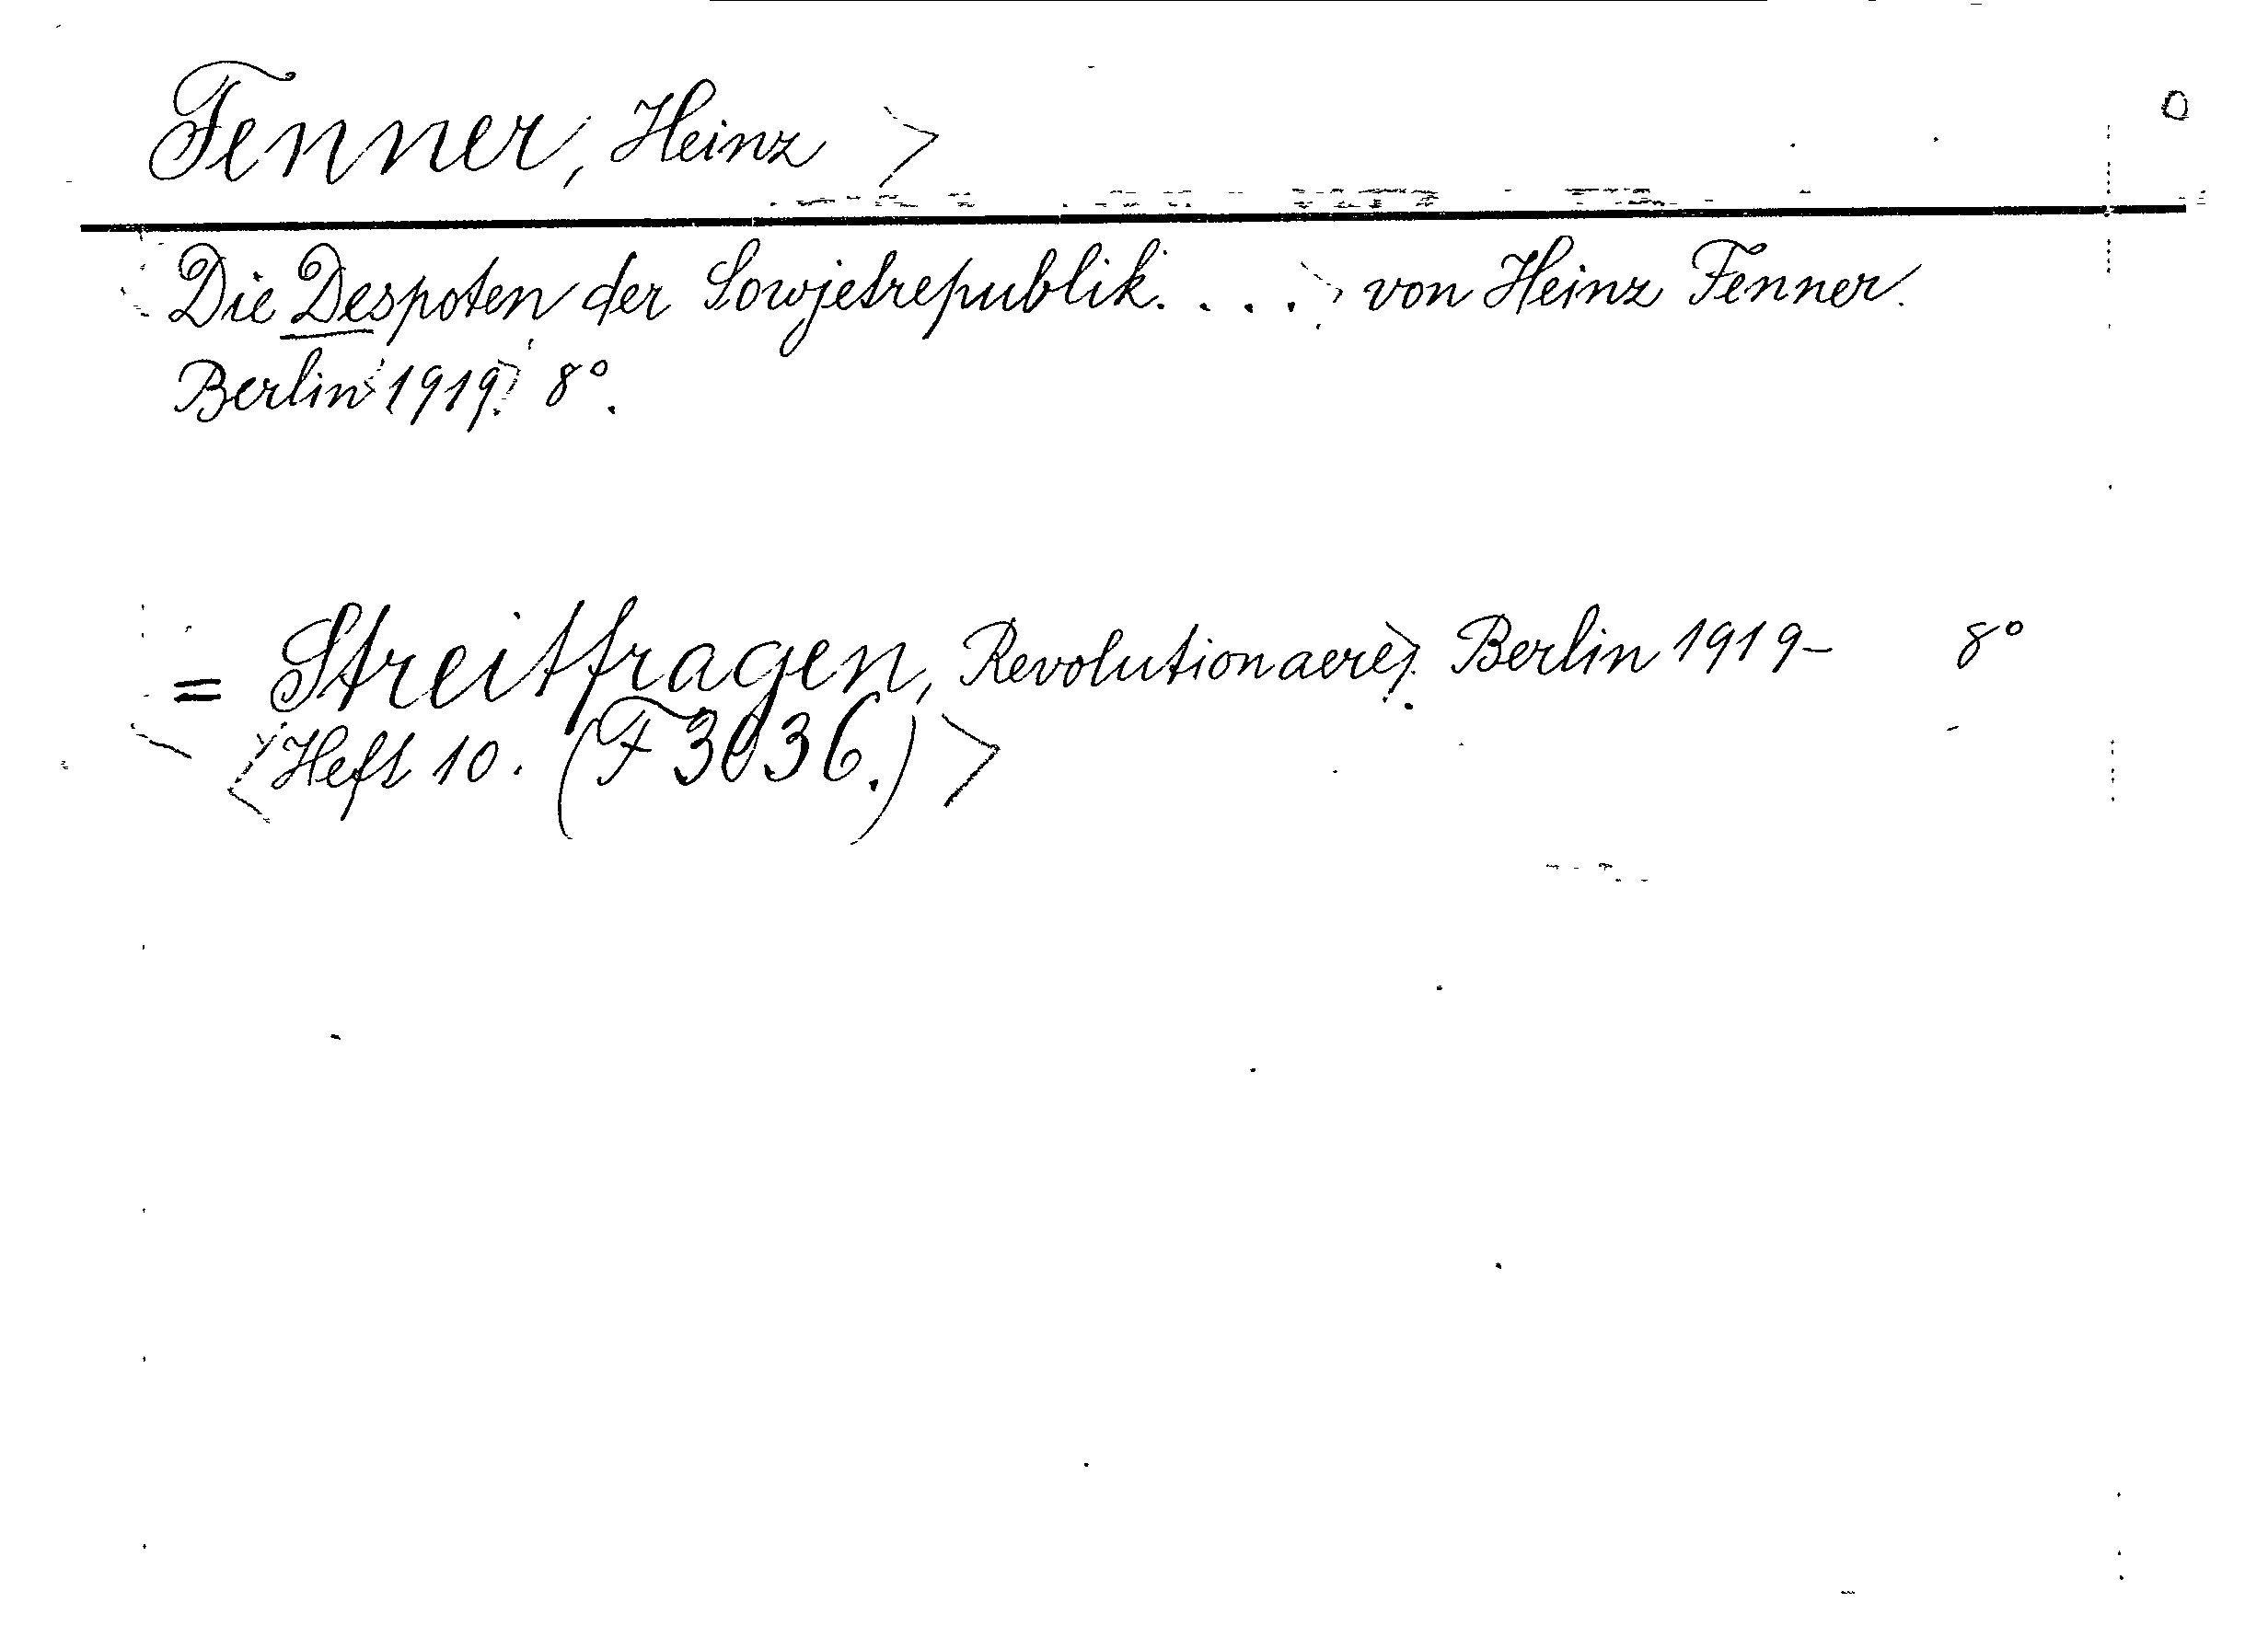 Fenner, Heinz >
O
Die Despoten der Sowjetrepublik. . . . > von Heinz Fenner.
Berlin 1919. 8°.
= Streitfragen, Revolutionaere>. Berlin 1919- 8°
<Heft 10. (F 3036.) >